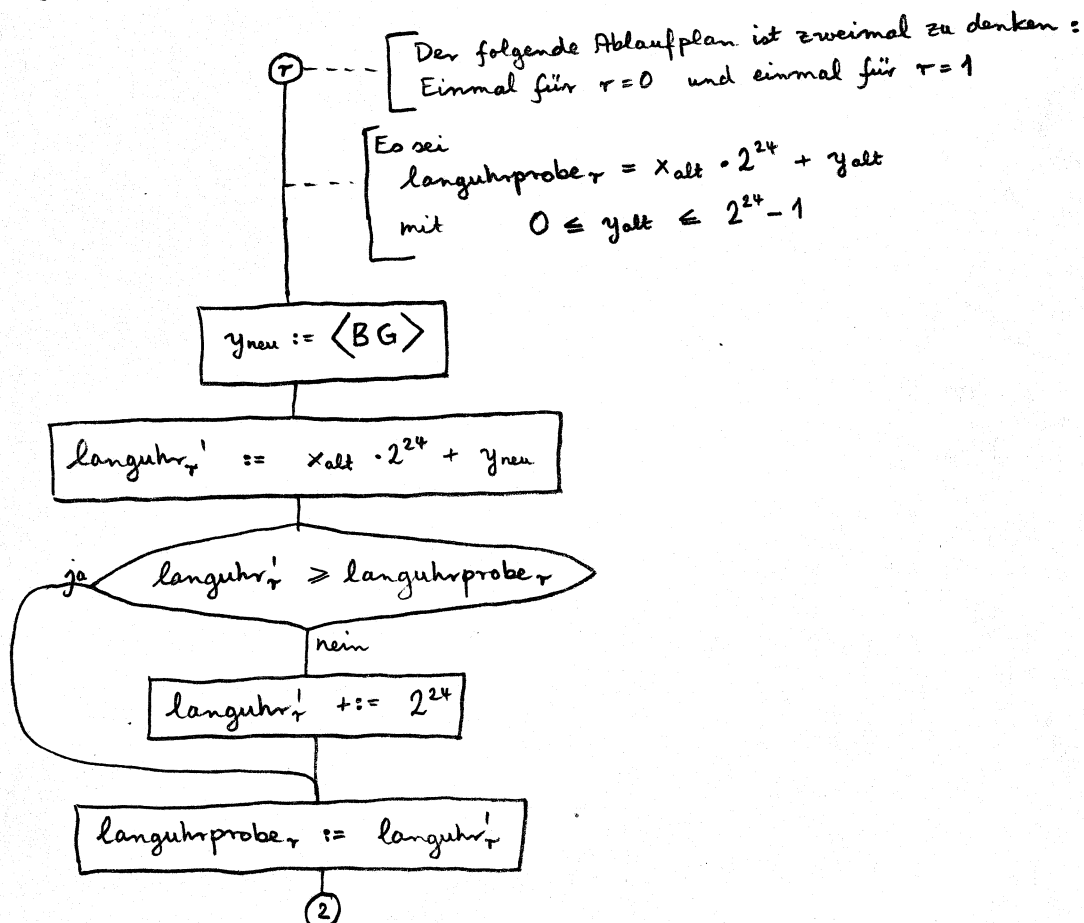 r
Der folgende Ablaufplan ist zweimal zu denken:
Einmal für r=0 und einmal für r=1
Es sei
languhrprobe_r = x_alt · 2^24 + y_alt
mit 0 ≦ y_alt ≦ 2^24 - 1
y_neu := <BG>
languhr_r' := x_alt · 2^24 + y_neu
ja
languhr_r' ⩾ languhrprobe_r
nein
languhr_r' +:= 2^24
languhrprobe_r := languhr_r'
2